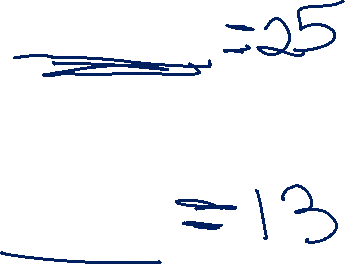 =25
=13